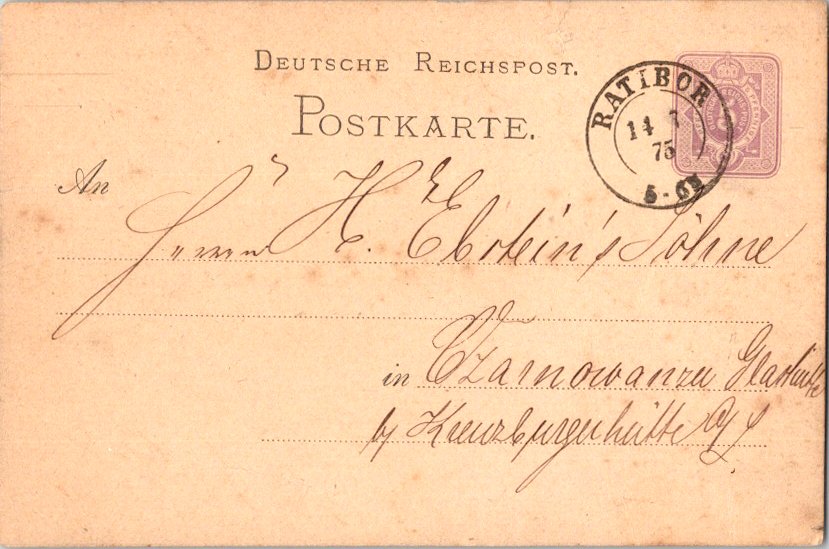 DEUTSCHE REICHSPOST.
POSTKARTE.
RATIBOR
14 7
75
5-6N
An
Herrn H. Ebstein's Söhne
in Czarnowanzer Glashütte
b/ Kreuzburgerhütte O/S